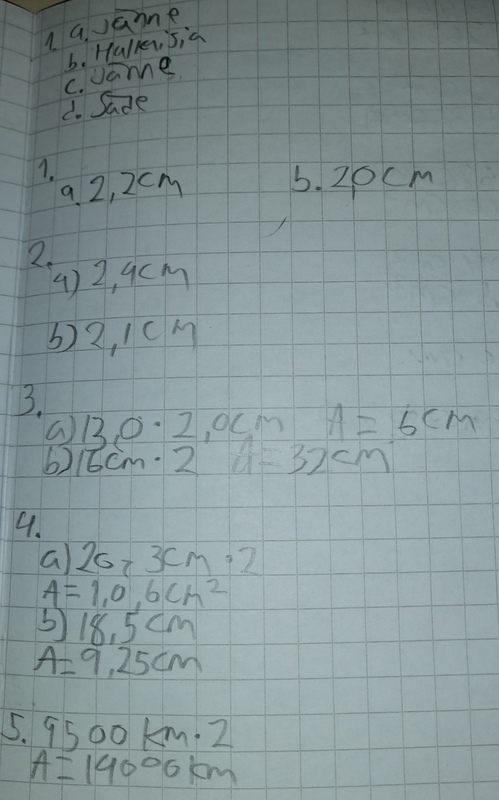 1. a. Jänne
b. Halkaisija
c. Jänne
d. Säde
1. a. 2,2cm b. 20cm
2. a) 2,4cm
b) 2,1cm
3. a) 3,0 · 2,0cm A = 6cm
b) 16cm · 2 A = 32cm
4. a) 3cm · 2
A = 1,0,6cm²
b) 18,5cm
A = 9,25cm
5. 9500 km · 2
A = 19000km